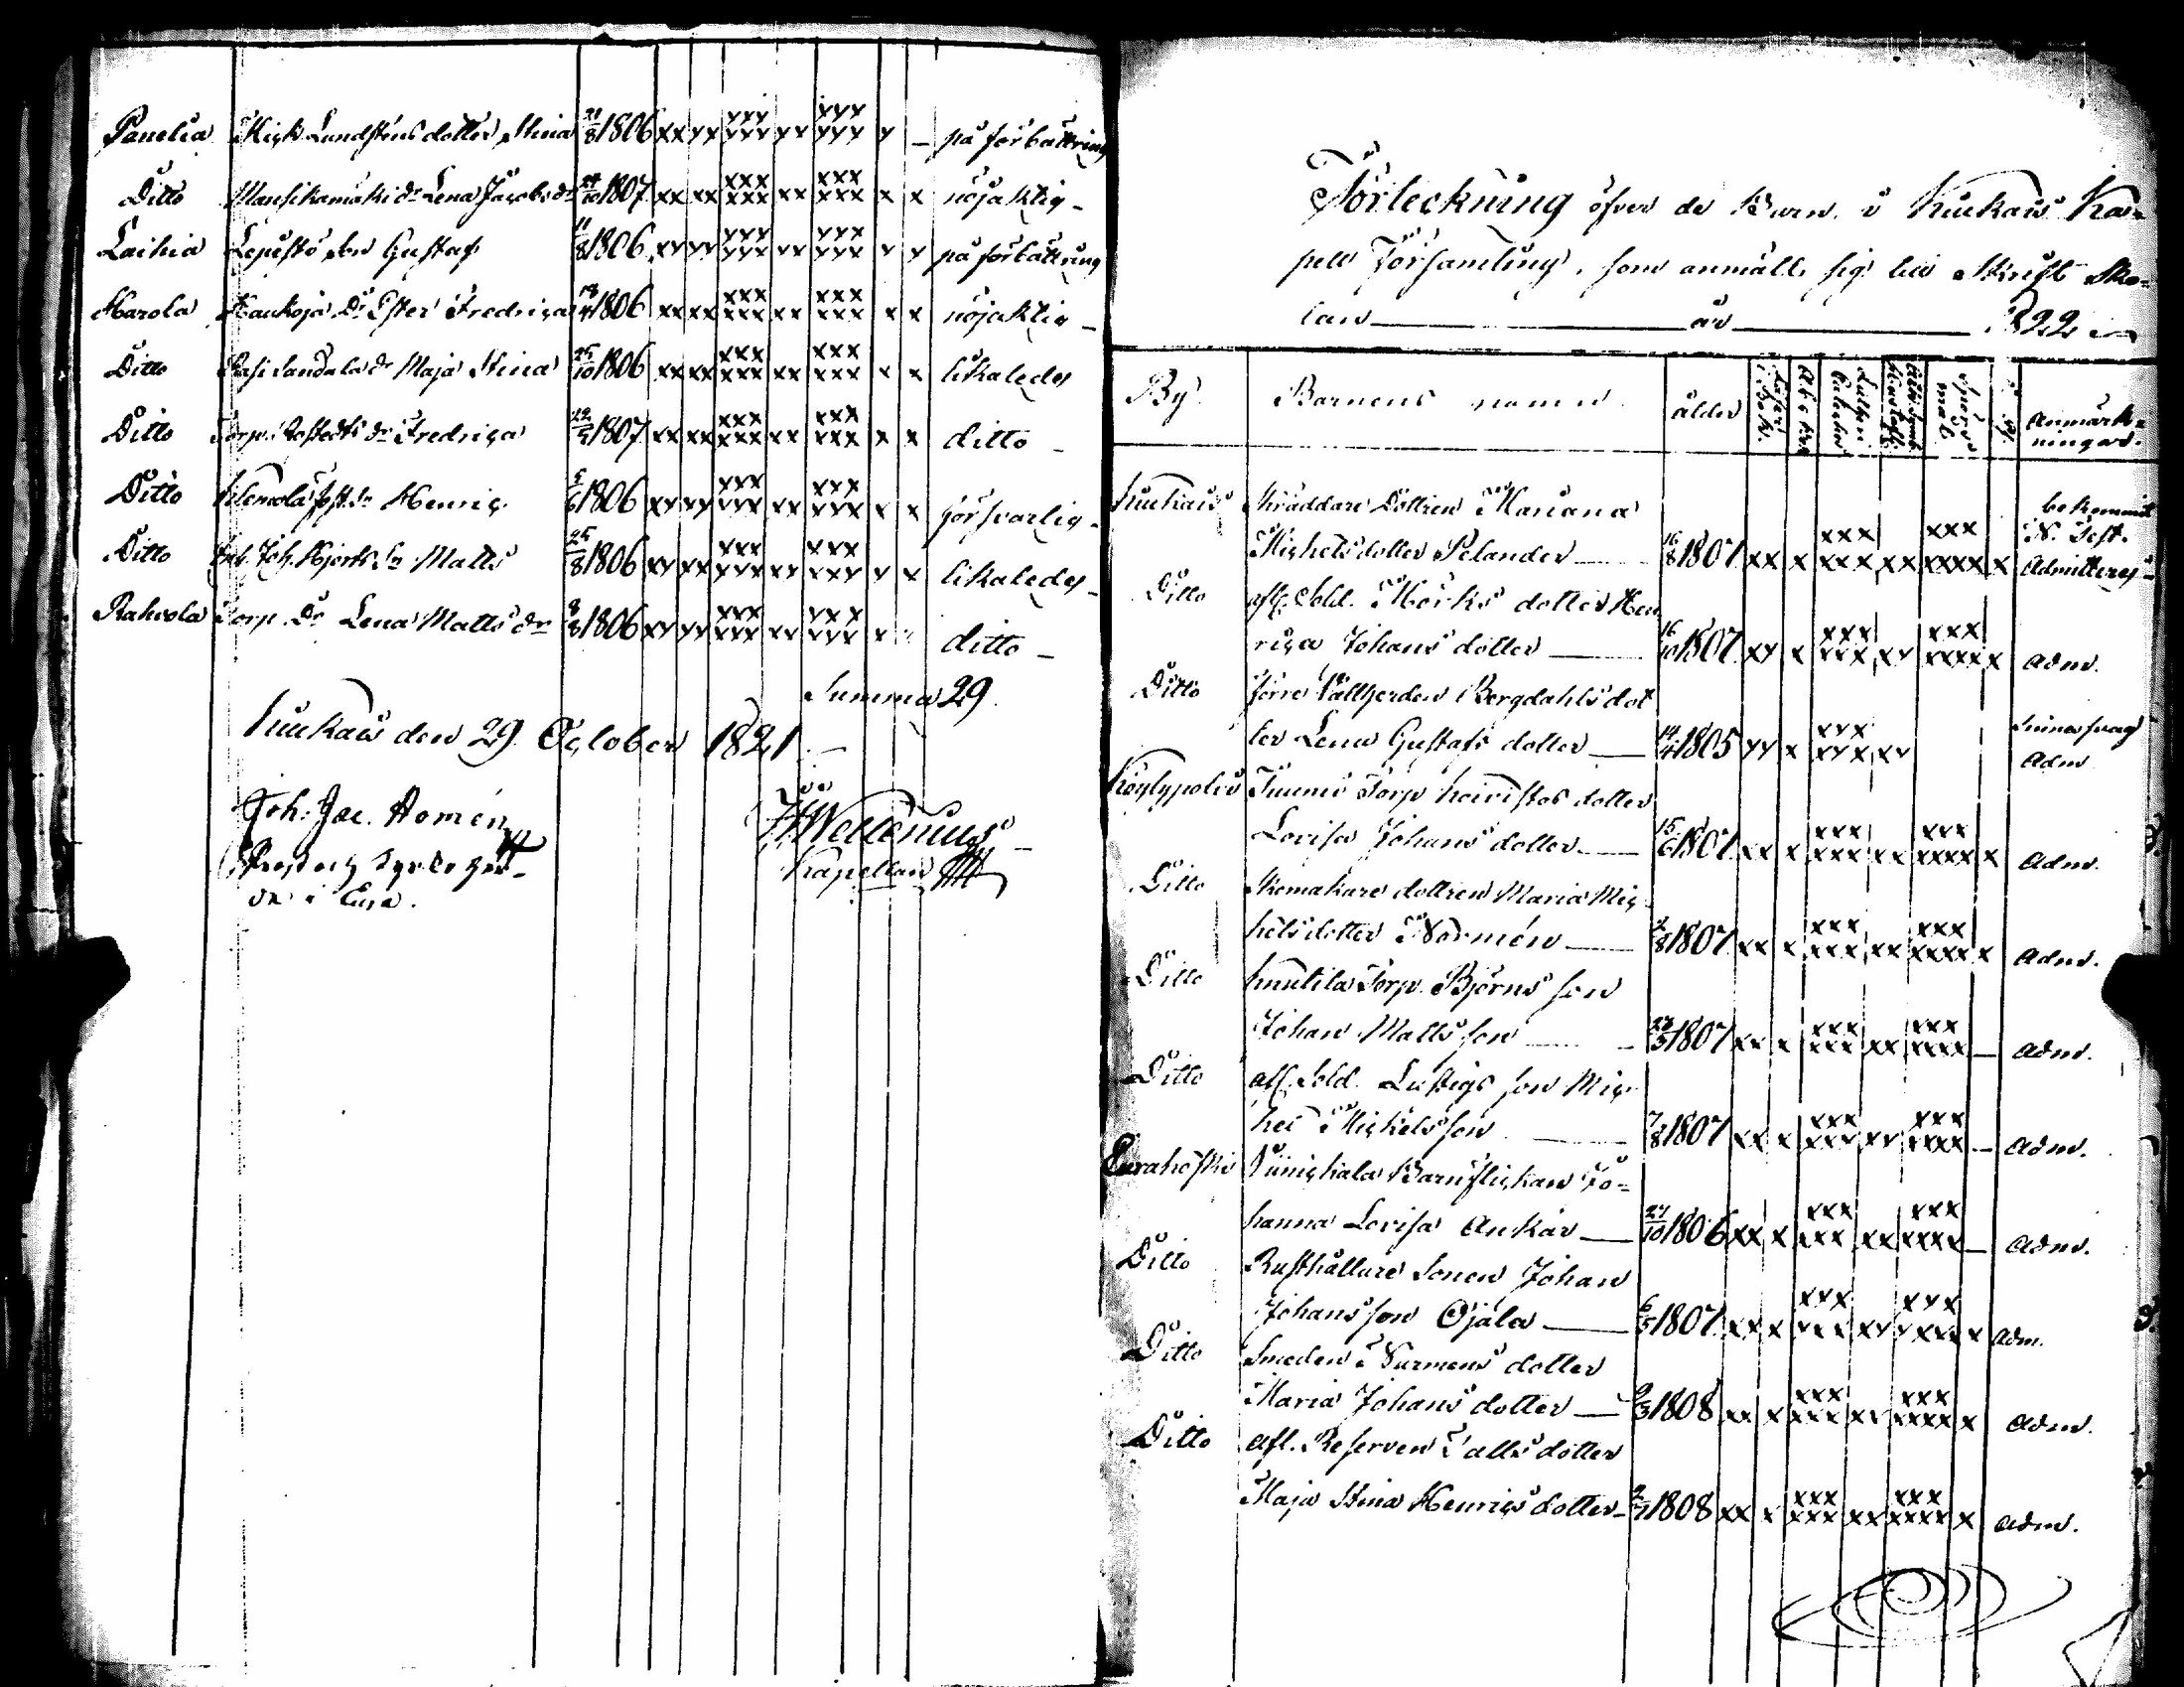 Panelia Mich Lundstens dotter Stina 21/8 1806 xx xx xxx xxx xx xxx xxx x – på förbättring
Ditto Mansikamäki dr Lena Jacobs dr 24/10 1807 xx xx xxx xxx xx xxx xxx x x nöjaktig –
Laihia Lepistö Son Gustaf 11/8 1806 xx xx xxx xxx xx xxx xxx x x på förbättring
Harola Haukoja Dr Ester Fredrica 18/4 1806 xx xx xxx xxx xx xxx xxx x x nöjaktig –
Ditto Sandala dr Maja Stina 25/10 1806 xx xx xxx xxx xx xxx xxx x x likaledes
Ditto Torp. dr Fredrica 1807 xx xx xxx xxx xx xxx xxx x x ditto –
Ditto Sn Henric 5/6 1806 xx xx xxx xxx xx xxx xxx x x försvarlig –
Ditto Joh. Hjorts Sn Matts 25/8 1806 xx xx xxx xxx xx xxx xxx x x likaledes –
Rahvola Torp. Dr Lena Matts dr 8/8 1806 xx xx xxx xxx xx xxx xxx x ditto –
Summa 29.
Kiukais den 29 October 1821 –
Joh. Jac. Homén
Prost och Kyrko her-
de i Eura.
Kapellan
Förteckning öfver de Barn i Kiukais Ka-
pell Församling, som anmält sig till Skrift Sko-
lan år 1822
By Barnens namn ålder Anmärk-
ningar.
Kiukais Skräddare Dottren Mariana bekommit
Michelsdotter Pelander 16/8 1807 xx x xxx xxx xx xxx xxxx x N. Test. Admitteras
Ditto afsk. Sold. Mörks dotter Hen
rica Johans dotter 16/10 1807 xx x xxx xxx xx xxx xxxx x adm.
Ditto Vallherden Bergdahls dot
ter Lena Gustafs dotter 14/4 1805 xx x xxx xxx xx Sinnessvag Adm
Köylypolvi Torp dotter
Lovisa Johans dotter 15/6 1807 xx x xxx xxx xx xxx xxxx x adm.
Ditto Skomakare dottren Maria Mic
hels dotter Normén 2/8 1807 xx x xxx xxx xx xxx xxxx x adm.
Ditto Knutila Torp. Björns son
Johan Matts son 1807 xx x xxx xxx xx xxx xxxx – adm.
Ditto afsk. Sold. Lustigs son Mic
hel Michelsson 7/8 1807 xx x xxx xxx xx xxx xxxx – adm.
Eurakoski Barnflickan Jo-
hanna Lovisa Ankar 27/10 1806 xx x xxx xxx xx xxx xxxx – adm.
Ditto Rusthållare Sonen Johan
Johansson Ojala 6/5 1807 xx x xxx xxx xx xxx xxxx x adm.
Ditto Smeden Nurmens dotter
Maria Johans dotter 9/3 1808 xx x xxx xxx xx xxx xxxx x adm.
Ditto afl. Reserven Talls dotter
Maja Stina Henrics dotter 1808 xx x xxx xxx xx xxx xxxx x adm.